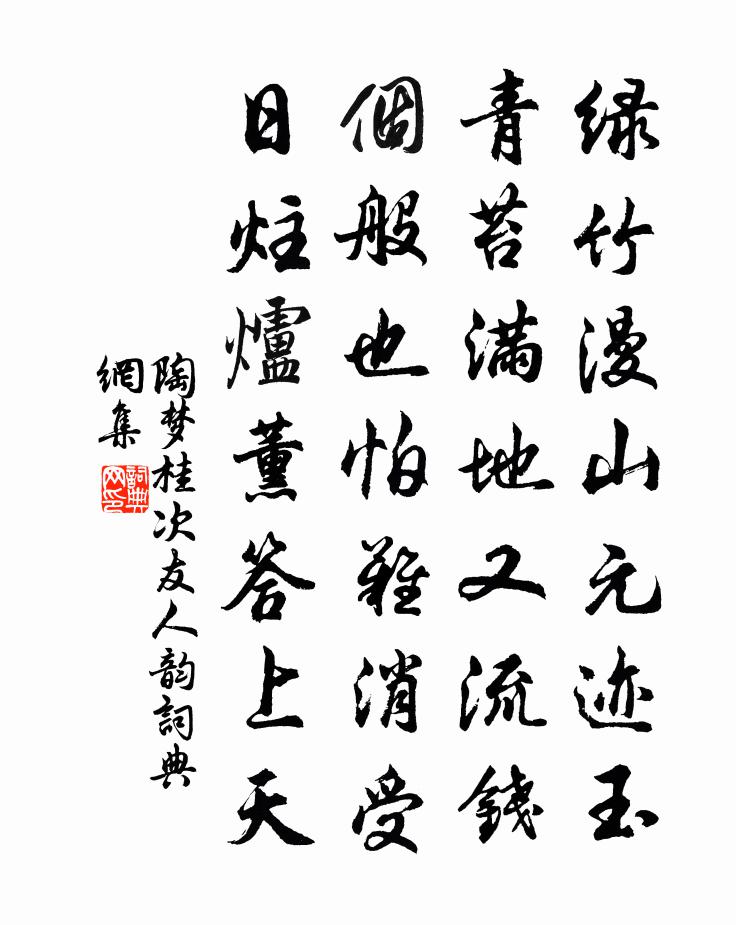 绿竹漫山元迹玉
青苔满地又流錢
個般也怕难消受
日炷爐薰答上天
陶梦桂次友人韵詞典
網集
詞典
网印